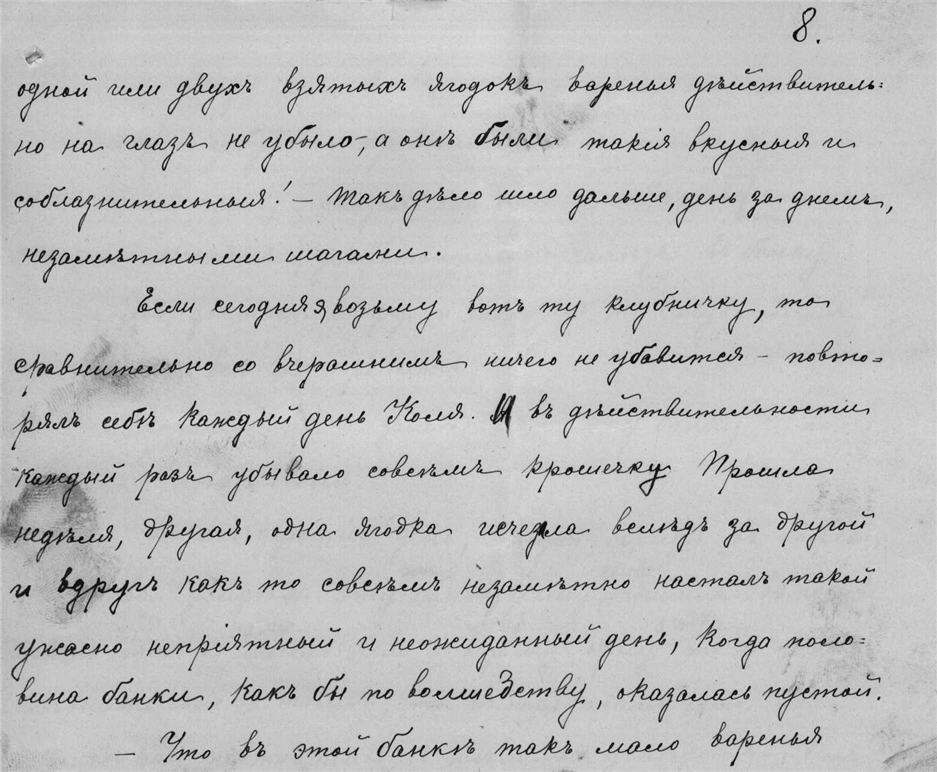 8.
одной или двухъ взятыхъ ягодокъ варенья дѣйствитель=
но на глазъ не убыло, а онѣ были такія вкусныя и
соблазнительныя! — Такъ дѣло шло дальше, день за днемъ,
незамѣтными шагами.
Если сегодня я возьму вотъ ту клубничку, то
сравнительно со вчерашнимъ ничего не убавится — повто=
рялъ себѣ каждый день Коля. И въ дѣйствительности
каждый разъ убывало совсѣмъ крошечку Прошла
недѣля, другая, одна ягодка исчезла вслѣдъ за другой
и вдругъ какъ то совсѣмъ незамѣтно насталъ такой
ужасно непріятный и неожиданный день, когда поло=
вина банки, какъ бы по волшебству, оказалась пустой.
— Что въ этой банкѣ такъ мало варенья